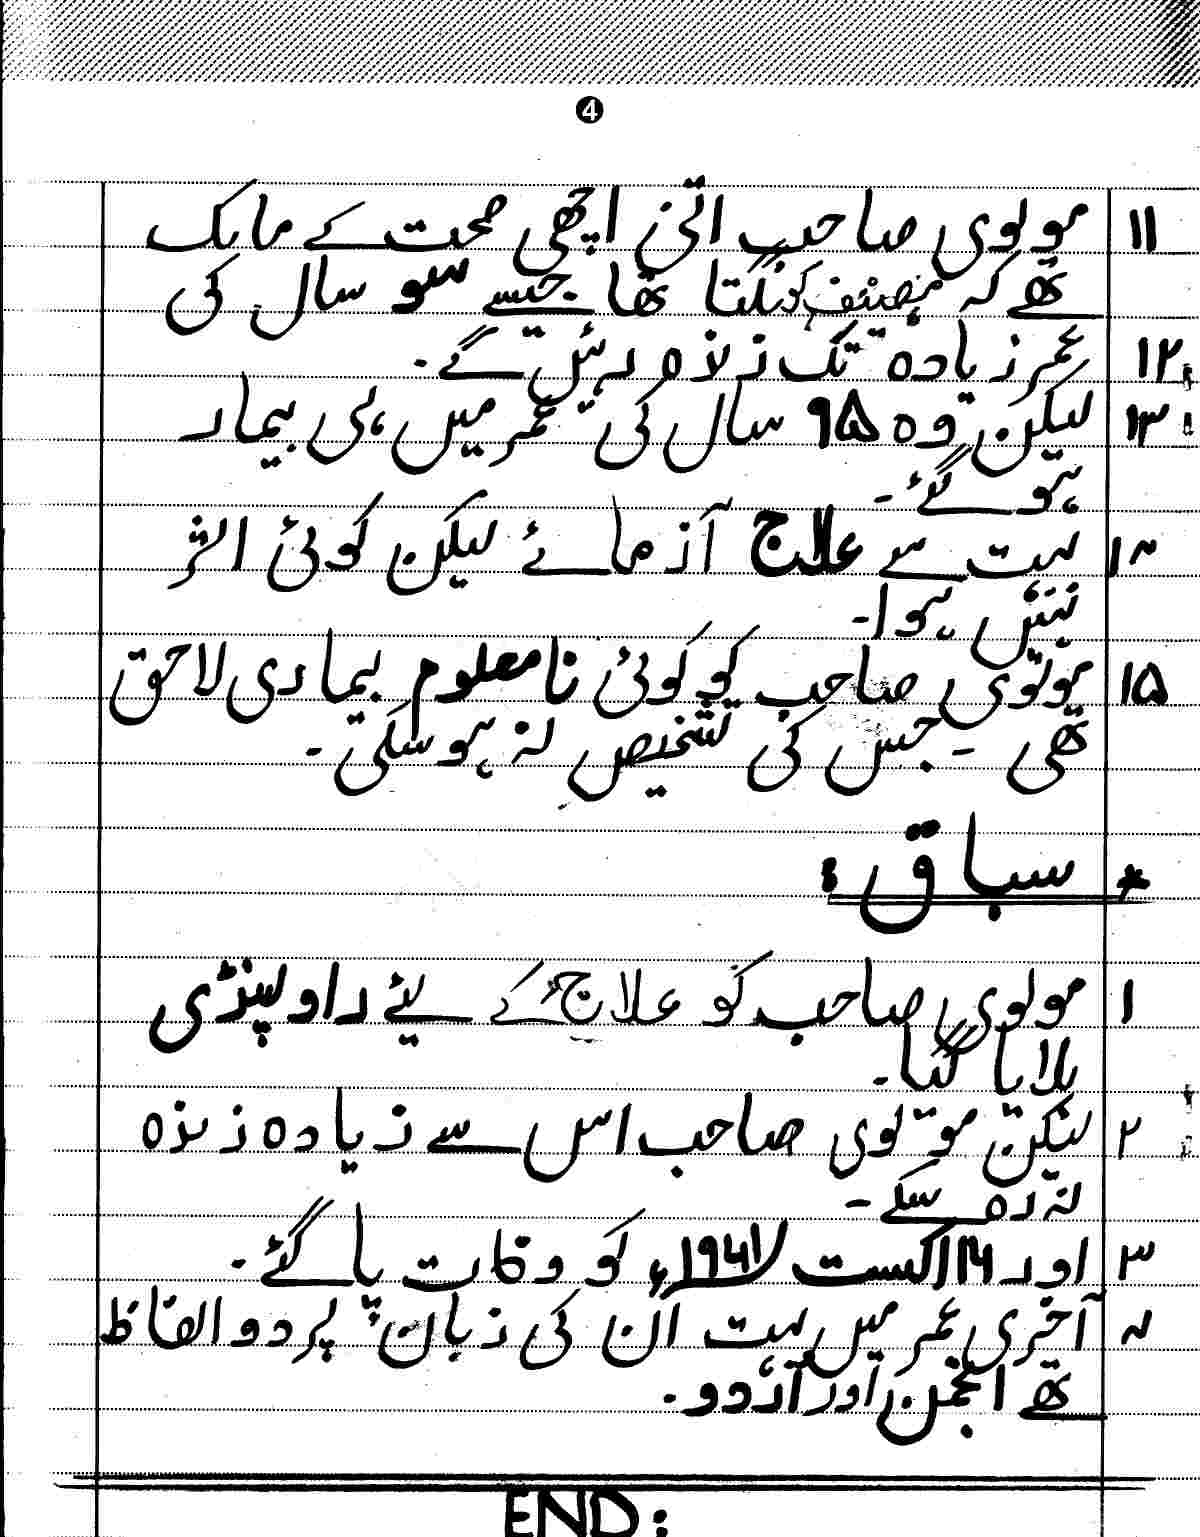 4
۱۱ مولوی صاحب اتنی اچھی صحت کے مالک
تھے کہ مصنف کو لگتا تھا جیسے سو سال کی
۱۲ عمر زیادہ تک زندہ رہیں گے۔
۱۳ لیکن وہ ۹۵ سال کی عمر میں ہی بیمار
ہو گئے۔
۱۴ بہت سے علاج آزمائے لیکن کوئی اثر
نہیں ہوا۔
۱۵ مولوی صاحب کو کوئی نامعلوم بیماری لاحق
تھی۔ جس کی تشخیص نہ ہو سکی۔
* سباق:
۱ مولوی صاحب کو علاج کے لیے راولپنڈی
بلایا گیا۔
۲ لیکن مولوی صاحب اس سے زیادہ زندہ
نہ رہ سکے۔
۳ اور ۱۶ اگست ۱۹۶۱ء کو وفات پا گئے۔
۴ آخری عمر میں بہت ان کی زبان پر دو الفاظ
تھے انجمن اور اُردو۔
END: